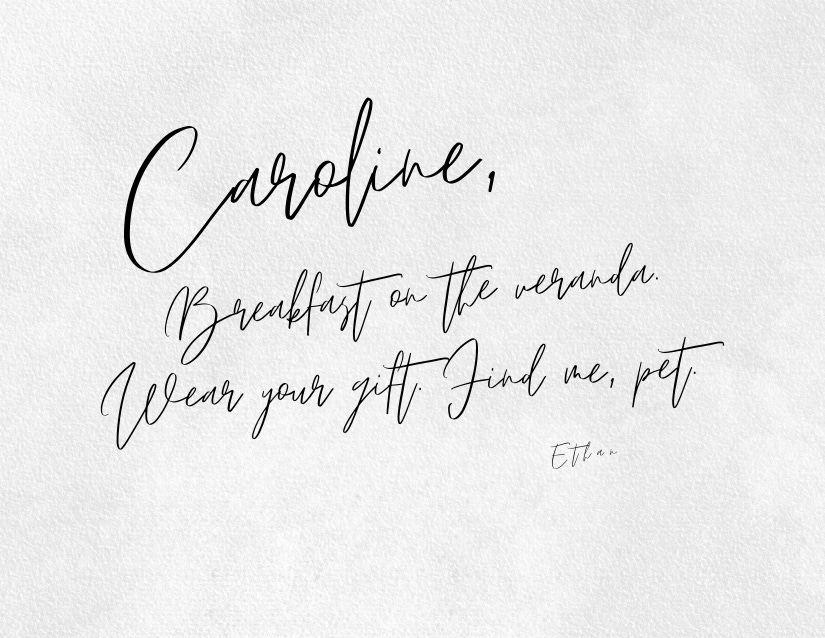 Caroline,
Breakfast on the veranda.
Wear your gift. Find me, pet.
Ethan